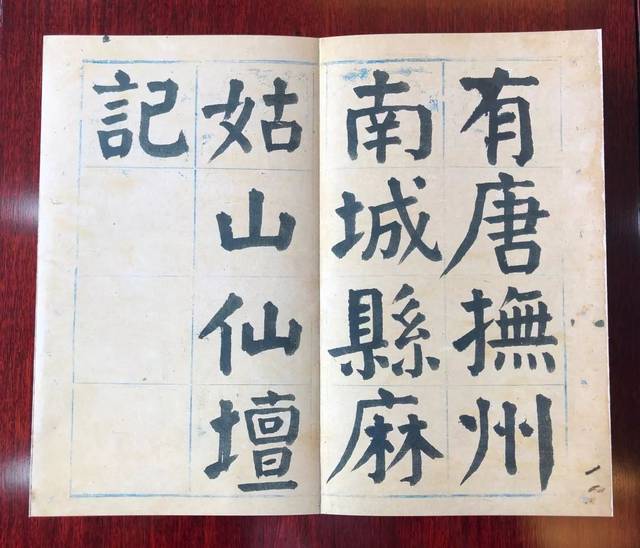 有唐撫州
南城縣麻
姑山仙壇
記